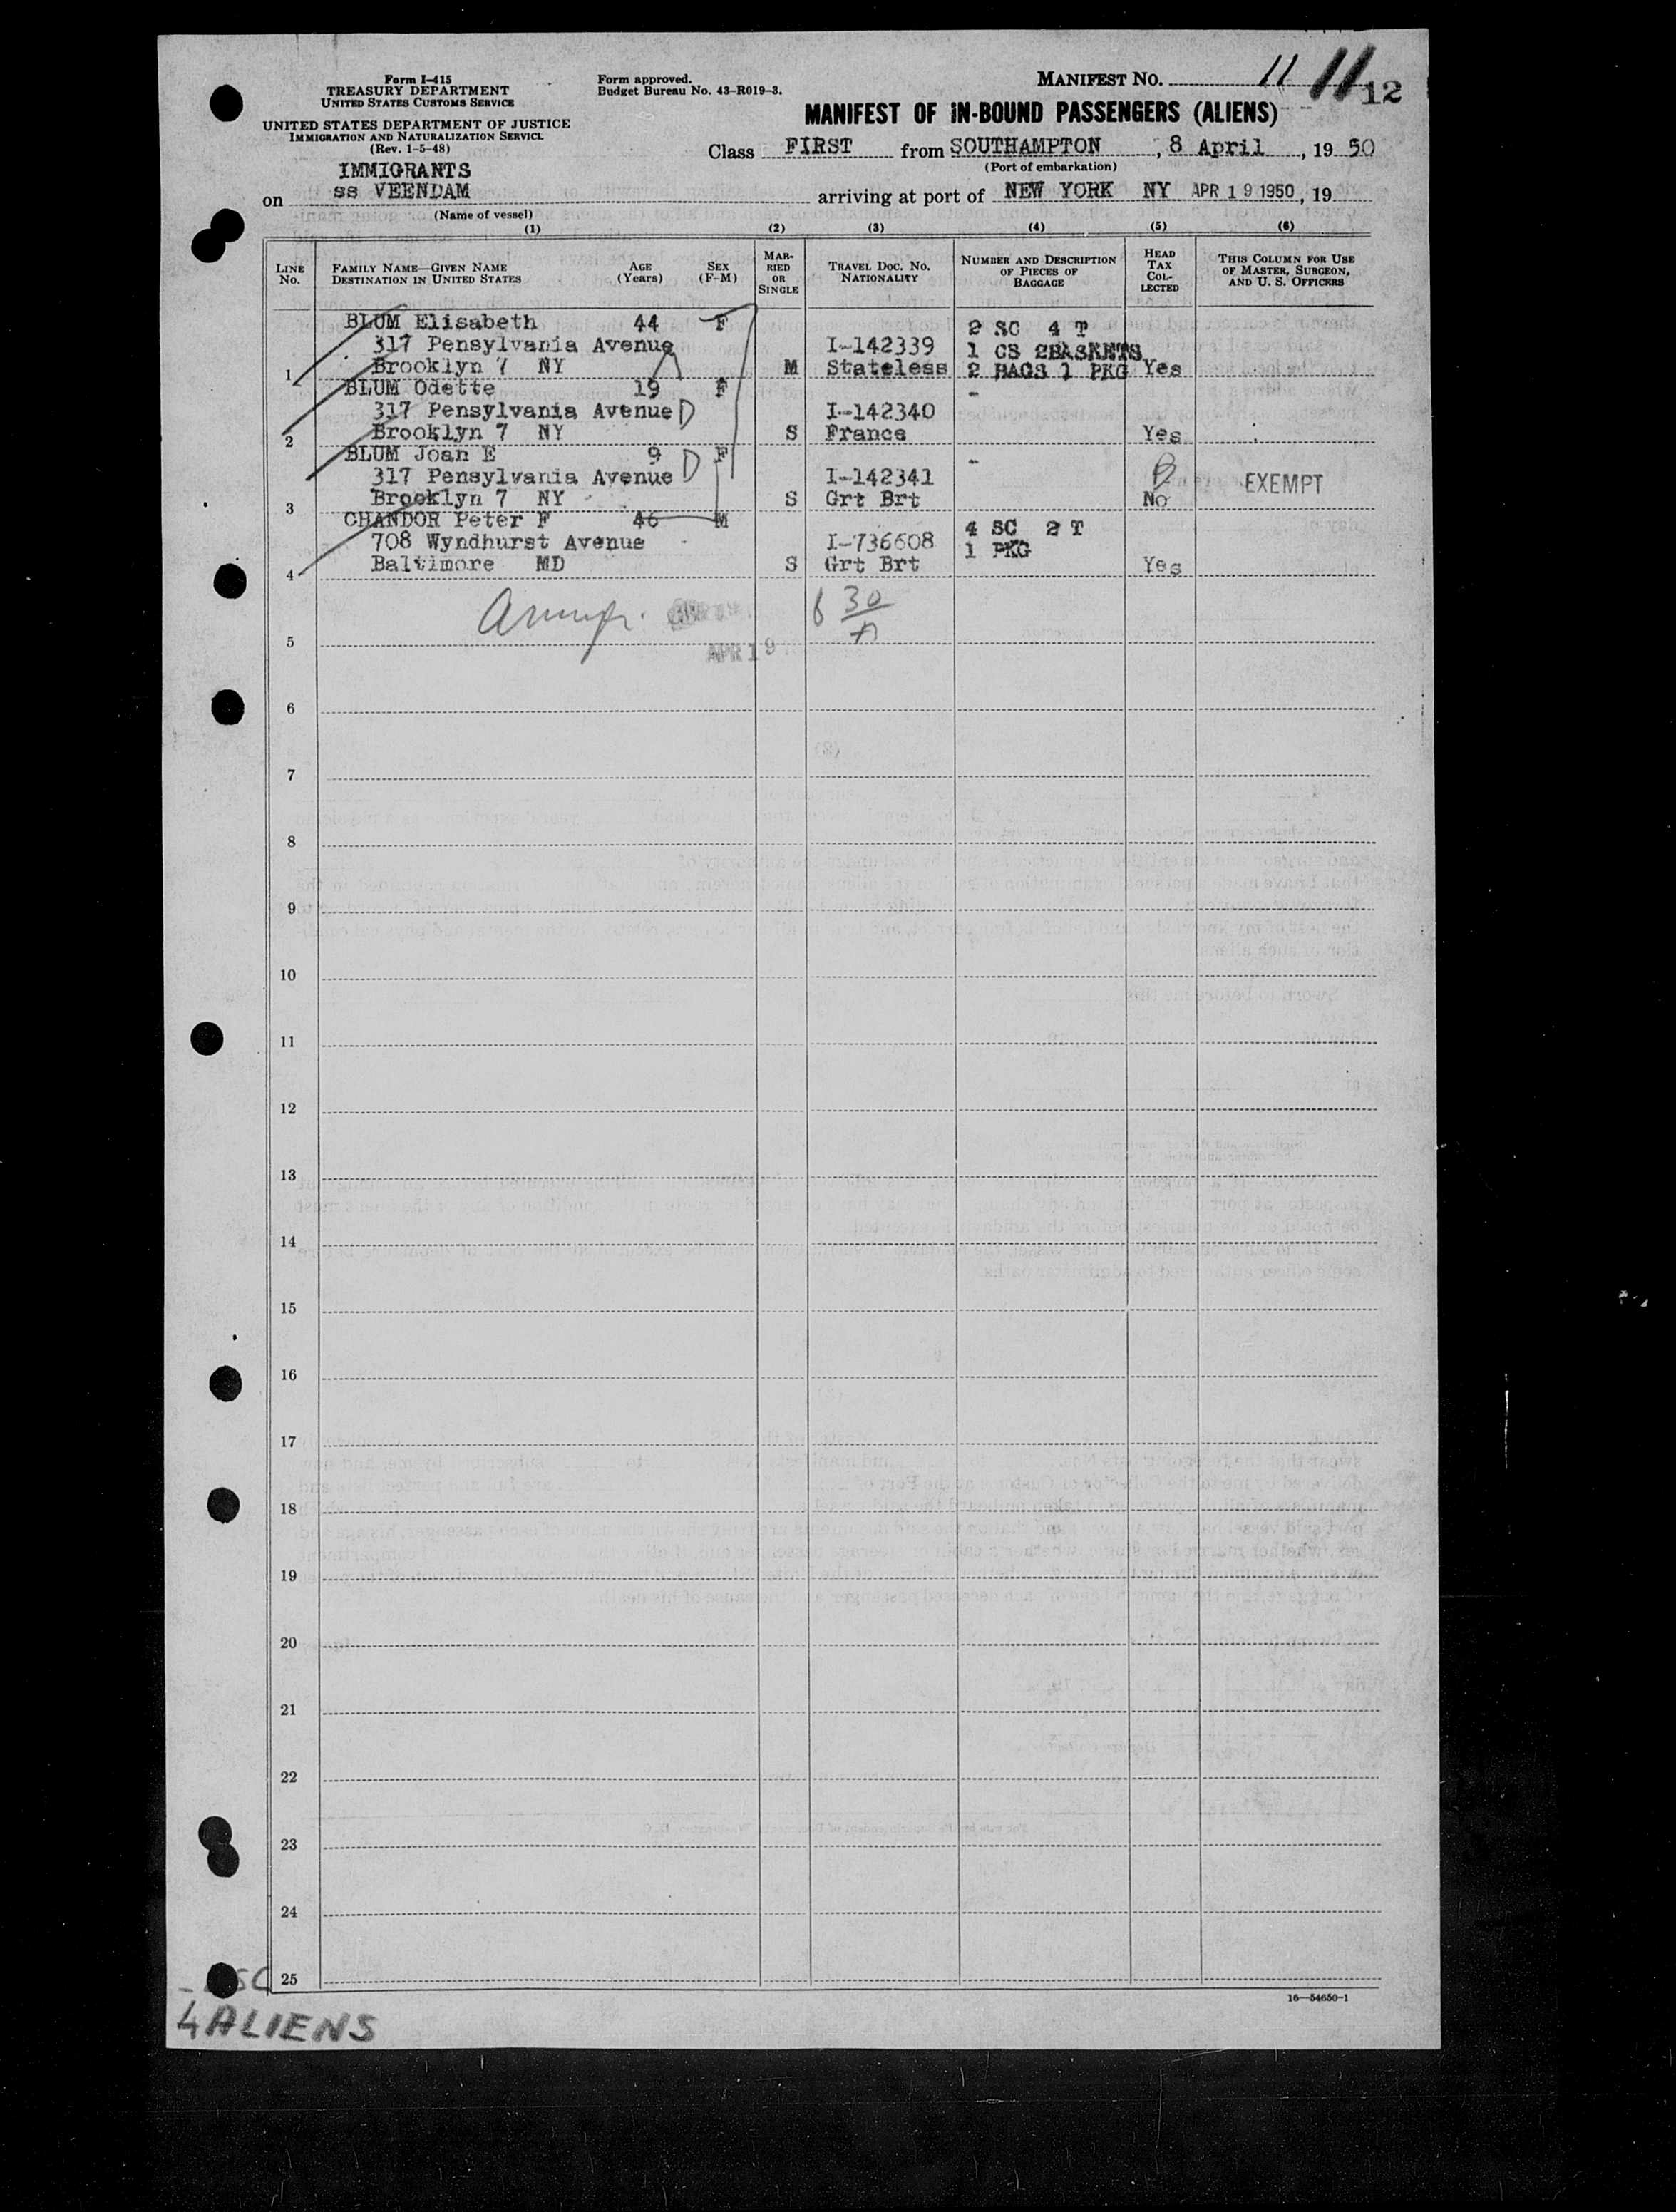 Form I-415
TREASURY DEPARTMENT
UNITED STATES CUSTOMS SERVICE
UNITED STATES DEPARTMENT OF JUSTICE
IMMIGRATION AND NATURALIZATION SERVICE
(Rev. 1-5-48)
Form approved.
Budget Bureau No. 43-R019-3.
MANIFEST NO. 11 11 12
MANIFEST OF IN-BOUND PASSENGERS (ALIENS)
Class FIRST from SOUTHAMPTON, 8 April, 19 50
(Port of embarkation)
IMMIGRANTS
on ss VEENDAM arriving at port of NEW YORK NY APR 19 1950, 19
(Name of vessel)
(1) (2) (3) (4) (5) (6)
LINE No. FAMILY NAME—GIVEN NAME DESTINATION IN UNITED STATES AGE (Years) SEX (F-M) MARRIED OR SINGLE TRAVEL DOC. NO. NATIONALITY NUMBER AND DESCRIPTION OF PIECES OF BAGGAGE HEAD TAX COLLECTED THIS COLUMN FOR USE OF MASTER, SURGEON, AND U. S. OFFICERS
BLUM Elisabeth 44 F 2 SC 4 T
317 Pensylvania Avenue I-142339 1 CS 2BASKETS
1 Brooklyn 7 NY M Stateless 2 BAGS 1 PKG Yes
BLUM Odette 19 F -
317 Pensylvania Avenue D I-142340
2 Brooklyn 7 NY S France Yes
BLUM Joan E 9 F -
317 Pensylvania Avenue D I-142341 EXEMPT
3 Brooklyn 7 NY S Grt Brt No
CHANDOR Peter F 46 M 4 SC 2 T
708 Wyndhurst Avenue I-736608 1 PKG
4 Baltimore MD S Grt Brt Yes
30
5
APR 19
6
7
8
9
10
11
12
13
14
15
16
17
18
19
20
21
22
23
24
25
16—54650-1
4 ALIENS